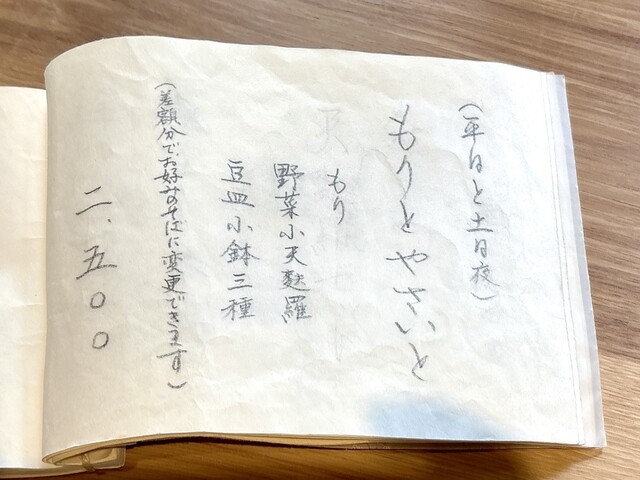 (平日と土日夜)
もりとやさいと
もり
野菜小天麩羅
豆皿小鉢三種
(差額分でお好みのそばに変更できます)
二、五〇〇